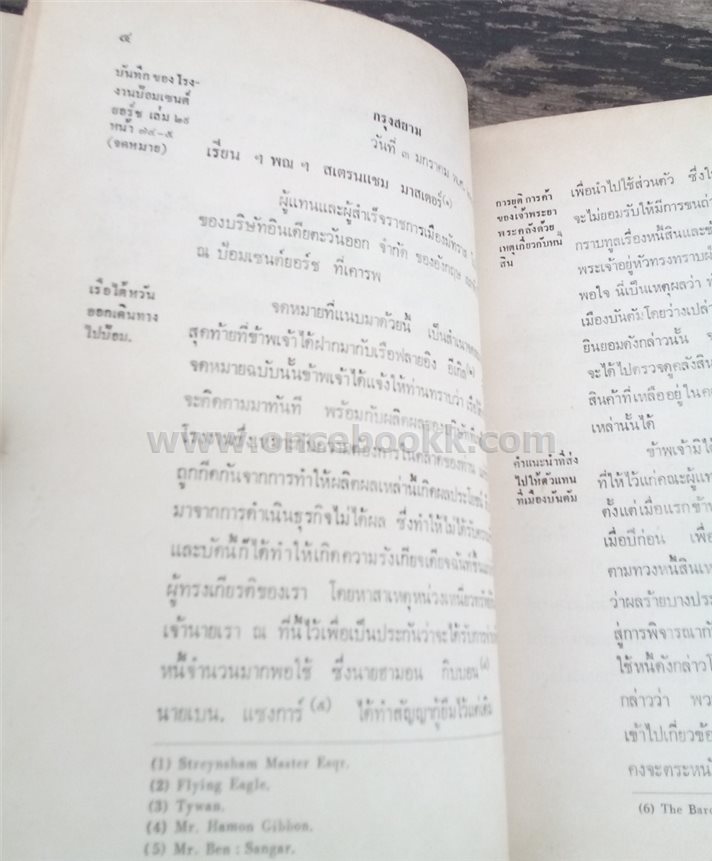 ๔
บันทึกของโรง-
งานป้อมเซนต์
ยอร์ช เล่ม ๒๙
หน้า ๗๔-๕
(จดหมาย)
กรุงสยาม
วันที่ ๓ มกราคม
เรียน ฯ พณ ฯ สเตรนแชม มาสเตอร์(๑)
ผู้แทนและผู้สำเร็จราชการเมืองมัทราช
ของบริษัทอินเดียตะวันออก จำกัด ของอังกฤษ
ณ ป้อมเซนต์ยอร์ช ที่เคารพ
เรือไต้หวัน
ออกเดินทาง
ไปป้อม.
จดหมายที่แนบมาด้วยนี้ เป็นสำเนา
สุดท้ายที่ข้าพเจ้าได้ฝากมากับเรือฟลายอิง อีเกิล(๒)
จดหมายฉบับนั้นข้าพเจ้าได้แจ้งให้ท่านทราบว่า
จะติดตามมาทันที พร้อมกับผลิตผลของ
โรงงานซึ่งเหมาะกับความต้องการในตลาดของท่าน
ถูกกีดกันจากการทำให้ผลิตผลเหล่านี้เกิดผลประโยชน์
มาจากการดำเนินธุรกิจไม่ได้ผล ซึ่งทำให้ไม่ได้รับความ
และบัดนี้ก็ได้ทำให้เกิดความรังเกียจเดียจฉันท์ขึ้น
ผู้ทรงเกียรติของเรา โดยหาสาเหตุหน่วงเหนี่ยวทรัพย์
เจ้านายเรา ณ ที่นี้ไว้เพื่อเป็นประกันว่าจะได้รับการ
หนี้จำนวนมากพอใช้ ซึ่งนายฮามอน กิบบอน(๔)
นายเบน. แซงการ์ (๕) ได้ทำสัญญากู้ยืมไว้แต่เดิม
(1) Streynsham Master Esqr.
(2) Flying Eagle.
(3) Tywan.
(4) Mr. Hamon Gibbon.
(5) Mr. Ben : Sangar.
การยุติการค้า
ของเจ้าพระยา
พระคลังด้วย
เหตุเกี่ยวกับหนี้
สิน
เพื่อนำไปใช้ส่วนตัว ซึ่ง
จะไม่ยอมรับให้มีการขน
กราบทูลเรื่องหนี้สินและ
พระเจ้าอยู่หัวทรงทราบ
พอใจ นี่เป็นเหตุผลว่า
เมืองบันตัมโดยว่างเปล่า
ยินยอมดังกล่าวนั้น
จะได้ไปตรวจดูคลังสิน
สินค้าที่เหลืออยู่ใน
เหล่านั้นได้
คำแนะนำที่ส่ง
ไปให้ตัวแทน
ที่เมืองบันตัม
ข้าพเจ้ามิได้
ที่ให้ไว้แก่คณะผู้แทน
ตั้งแต่เมื่อแรก
เมื่อปีก่อน เพื่อ
ตามทวงหนี้สิน
ว่าผลร้ายบาง
สู่การพิจารณา
ใช้หนี้ดังกล่าว
กล่าวว่า
เข้าไปเกี่ยวข้อง
คงจะตระหนัก
(6) The
www.oncebookk.com